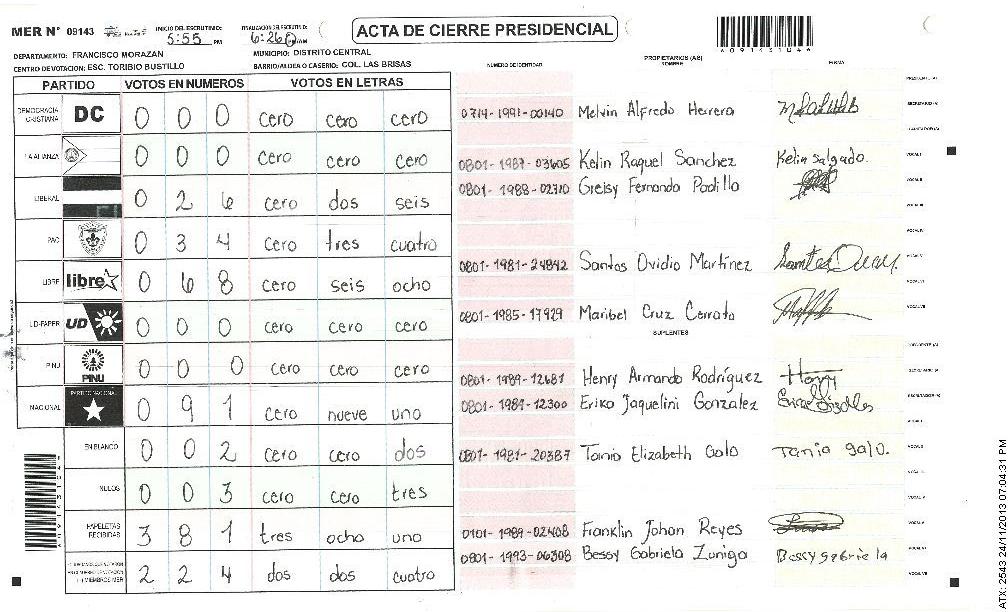 MER N° 09143 INICIO DEL ESCRUTINIO: 5:55 PM FINALIZACION DEL ESCRUTINIO: 6:26 PM ACTA DE CIERRE PRESIDENCIAL
DEPARTAMENTO: FRANCISCO MORAZAN MUNICIPIO: DISTRITO CENTRAL
CENTRO DE VOTACION: ESC. TORIBIO BUSTILLO BARRIO/ALDEA O CASERIO: COL. LAS BRISAS
NUMERO DE IDENTIDAD PROPIETARIOS (AS) NOMBRE FIRMA
PARTIDO VOTOS EN NUMEROS VOTOS EN LETRAS
DEMOCRACIA CRISTIANA DC 0 0 0 cero cero cero
0714-1991-00140 Melvin Alfredo Herrera
LA ALIANZA 0 0 0 cero cero cero
0801-1987-03605 Kelin Raquel Sanchez Kelin Salgado.
0801-1988-02710 Greisy Fernando Padillo
LIBERAL 0 2 6 cero dos seis
PAC 0 3 4 cero tres cuatro
0801-1981-24842 Santos Ovidio Martinez
LIBRE libre 0 6 8 cero seis ocho
0801-1985-17929 Maribel Cruz Cerrato
UD-FAPER UD 0 0 0 cero cero cero
SUPLENTES
PINU PINU 0 0 0 cero cero cero
0801-1989-12687 Henry Armando Rodríguez Henry
NACIONAL PARTIDO NACIONAL 0 9 1 cero nueve uno
0801-1987-12300 Erika Jaquelini Gonzalez
EN BLANCO 0 0 2 cero cero dos
0801-1981-20387 Tania Elizabeth Galo Tania galo.
NULOS 0 0 3 cero cero tres
PAPELETAS RECIBIDAS 3 8 1 tres ocho uno
0101-1989-02408 Franklin Johan Reyes
0801-1993-06308 Bessy Gabriela Zuniga Bessy gabriela
2 2 4 dos dos cuatro
ATX: 2543 24/11/2013 07:04:31 PM